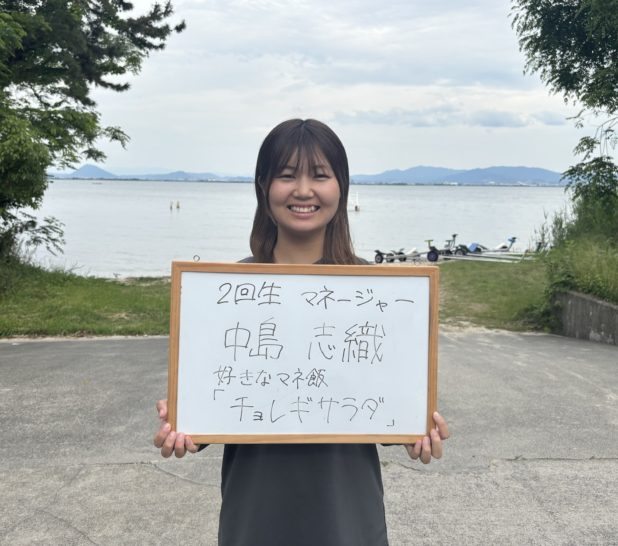 2回生 マネージャー
中島 志織
好きなマネ飯
「チョレギサラダ」